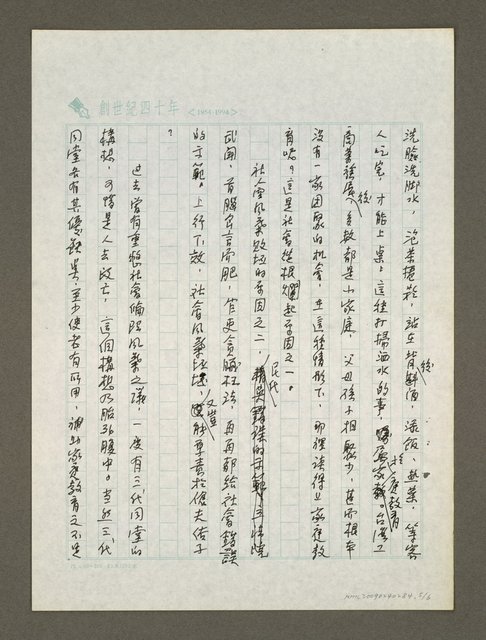 創世紀四十年 <1954-1994>
洗臉洗脚水,泡茶捲菸,站在背後斟酒,添飯,熱菜,等客
人吃完,才能上桌。這種打掃洒水的事,屬於家庭教育。台灣工
商業發展後,多數都是小家庭,父母後不相聚少,甚而根本
沒有一家團聚的機會,在這種情形下,那裡談得上家庭教
育呢?這是社會從根爛起原因之一。
社會風氣敗壞的原因之二,民代
武鬥,首腦名言而肥,官吏貪贓枉法,再再都給社會錯誤
的示範。上行下效,社會風氣敗壞,又豈能單責於役夫佐子
?
過去曾有重整社會倫理風氣之議,一度有三代同堂的
構想,可惜是人去政亡,這個構想乃胎死腹中。當然三代
同堂亦有其優缺點,至少使老有所用,補助家庭教育之不足
NML20090240284.5/6